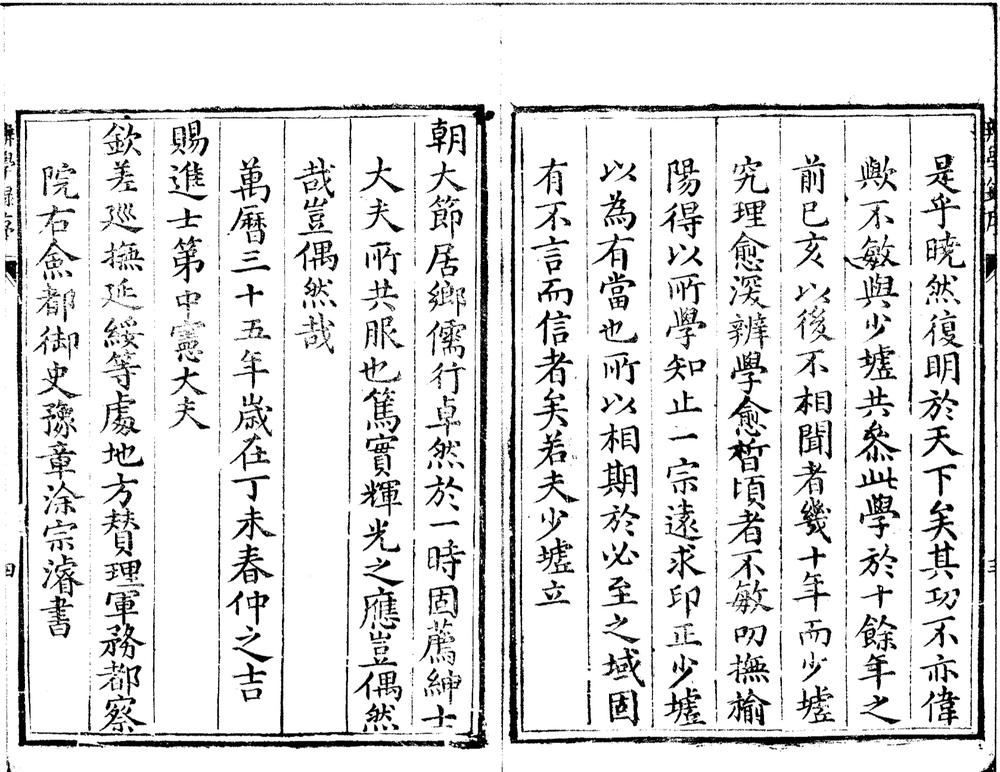 是乎曉然復明於天下矣其功不亦偉
歟不敏與少墟共叅此學於十餘年之
前巳亥以後不相聞者幾十年而少墟
究理愈深辨學愈晳頃者不敏叨撫榆
陽得以所學知止一宗遠求印正少墟
以為有當也所以相期於必至之域固
有不言而信者矣若夫少墟立
朝大節居鄉儒行卓然於一時固薦紳士
大夫所共服也篤實輝光之應豈偶然
哉豈偶然哉
萬曆三十五年歲在丁未春仲之吉
賜進士第中憲大夫
欽差廵撫延綏等處地方賛理軍務都察
院右僉都御史豫章涂宗濬書
辨學錄序
四